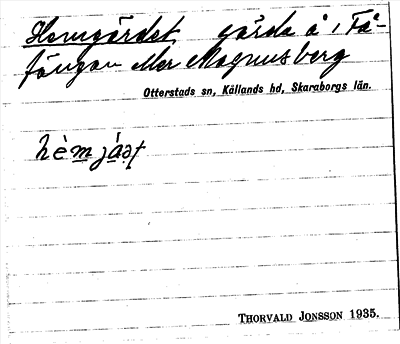 Hemgärdet gärde å 1 Få-
fängan eller Magnusberg
Otterstads sn, Kållands hd, Skaraborgs län.
hè̀m já̤ət
THORVALD JONSSON 1935.